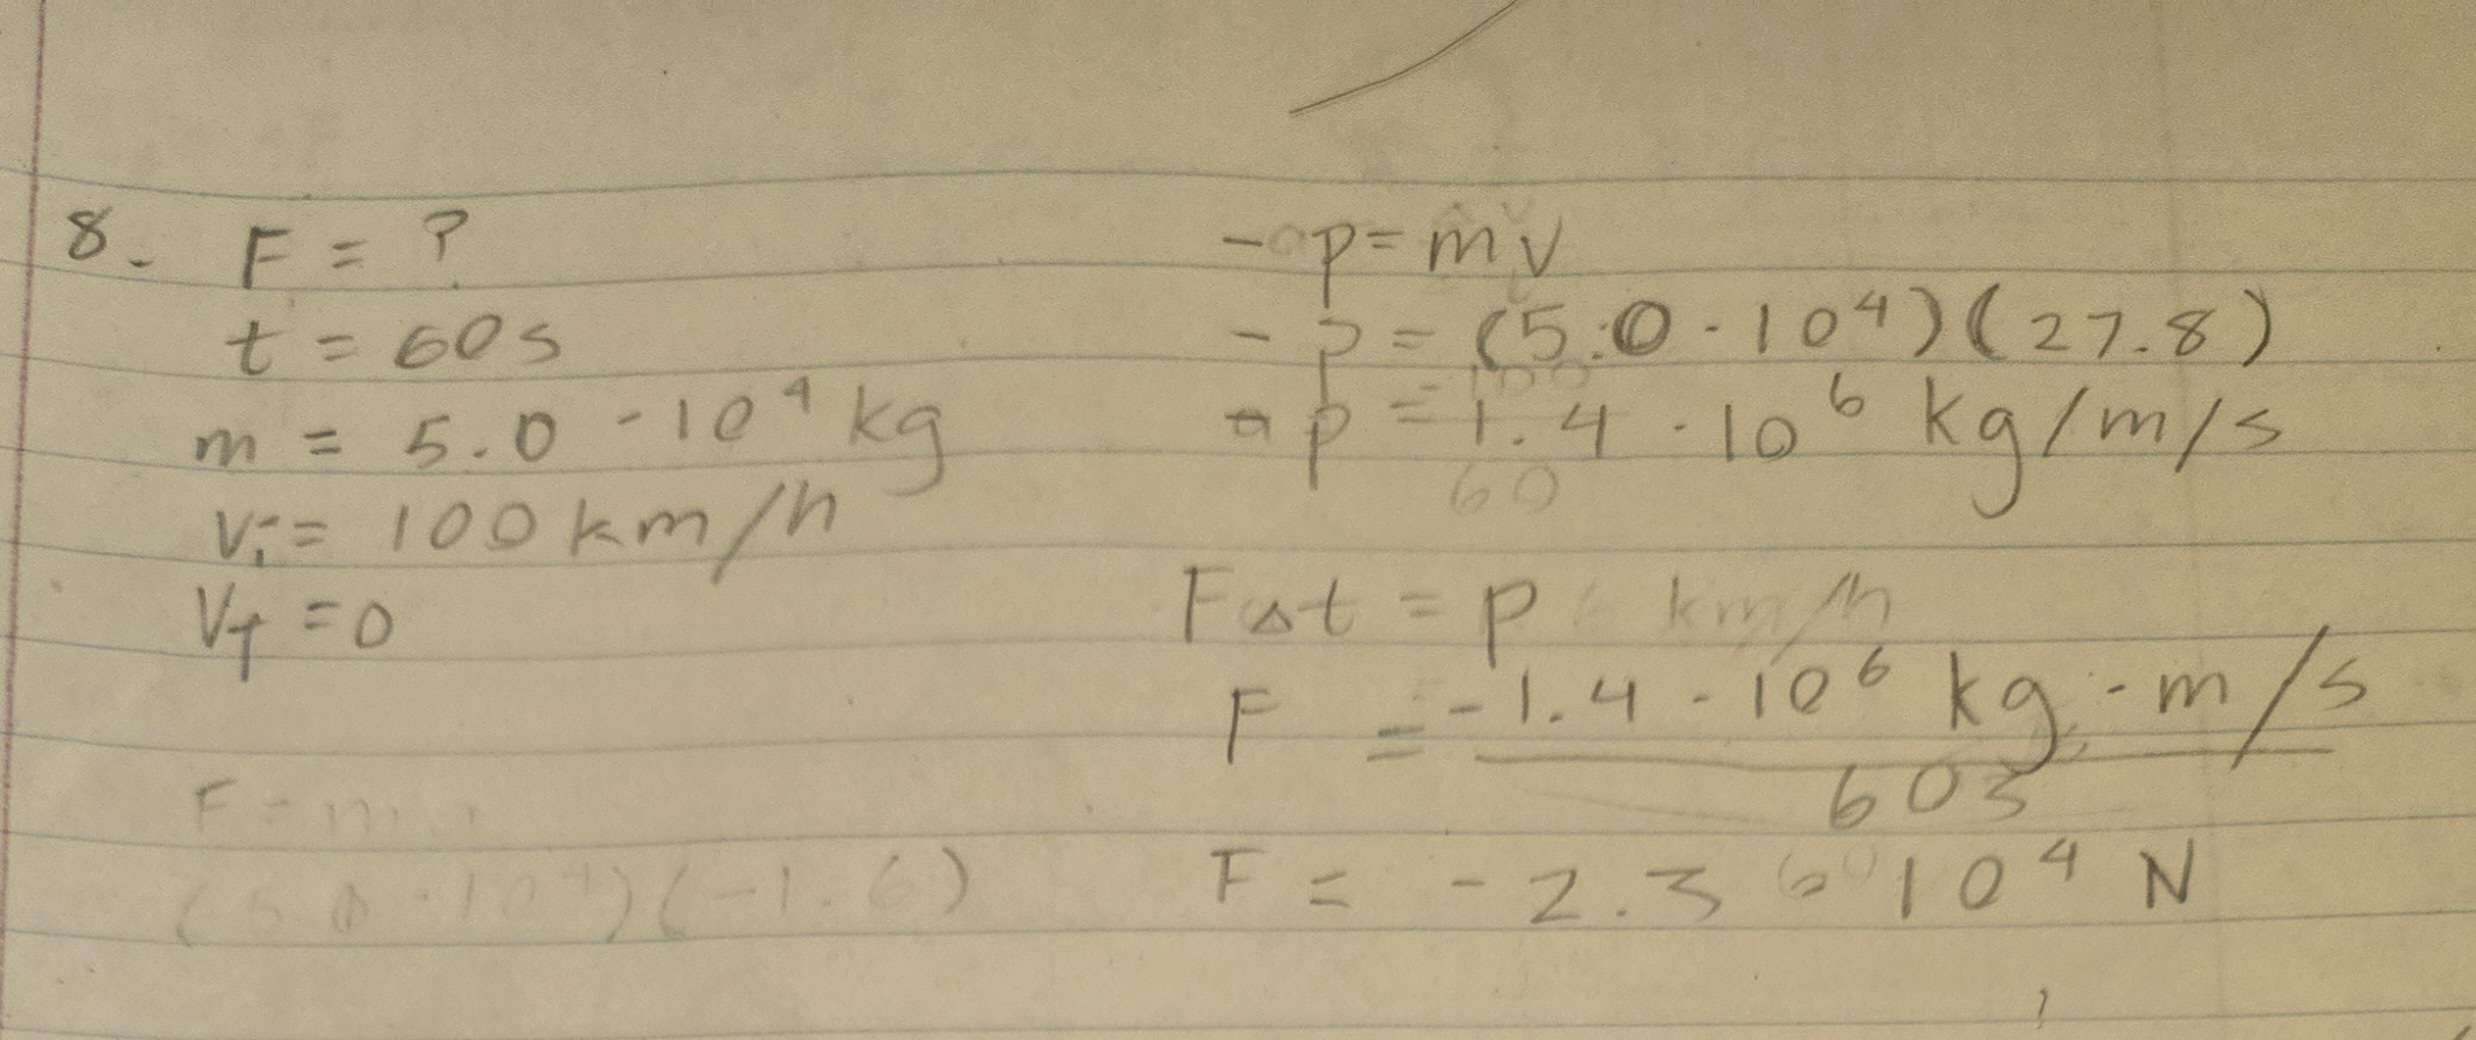 8. F = ?
t = 60s
m = 5.0 · 10⁴ kg
Vi = 100 km/h
Vf = 0
- p = mv
- p = (5.0 · 10⁴)(27.8)
- p = 1.4 · 10⁶ kg/m/s
60
FΔt = p
km/h
F = -1.4 · 10⁶ kg · m/s
60s
F = -2.3 10⁴ N
(5.0 · 10⁴)(-1.6)